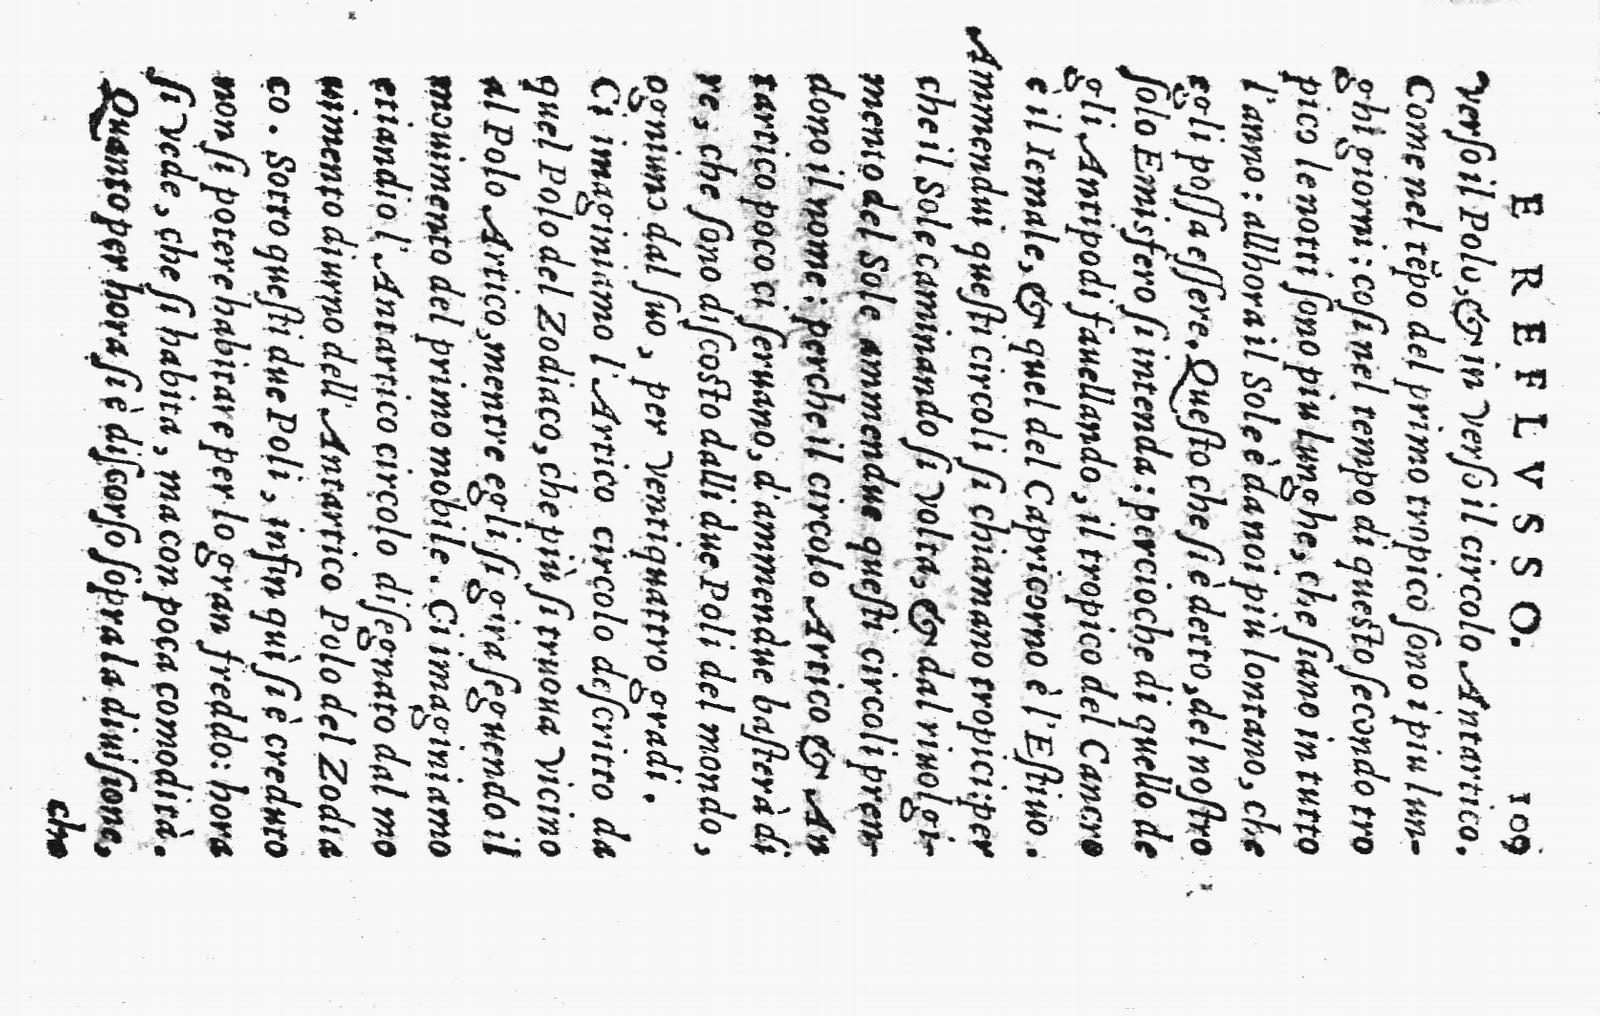 E REFLVSSO. 109
verſo il Polo, & in verſo il circolo Antartico.
Come nel tẽpo del primo tropico ſono i piu lun-
ghi giorni: coſi nel tempo di queſto ſecondo tro
pico le notti ſono piu lunghe, che ſiano in tutto
l'anno: allhora il Sole è da noi più lontano, che
egli poſſa eſſere. Queſto che ſi è detto, del noſtro
ſolo Emisfero ſi intenda: percioche di quello de
gli Antipodi fauellando, il tropico del Cancro
è il Iemale, & quel del Capricorno è l'Eſtiuo.
Ammendui queſti circoli ſi chiamano tropici: per
che il Sole caminando ſi volta, & dal riuolgi-
mento del Sole ammendue queſti circoli pren-
dono il nome: perche il circolo Artico & An
tartico poco ci ſeruano, d'ammendue baſterà di
re, che ſono diſcoſto dalli due Poli del mondo,
ogniuno dal ſuo, per ventiquattro gradi.
Ci imaginiamo l'Artico circolo deſcritto da
quel Polo del Zodiaco, che più ſi truoua vicino
al Polo Artico, mentre egli ſi gira ſeguendo il
mouimento del primo mobile. Ci imaginiamo
etiandio l'Antartico circolo diſegnato dal mo
uimento diurno dell'Antartico Polo del Zodia
co. Sotto queſti due Poli, infin quì ſi è creduto
non ſi potere habitare per lo gran freddo: hora
ſi vede, che ſi habita, ma con poca comodità.
Quanto per hora ſi è diſcorſo ſopra la diuiſione,
che